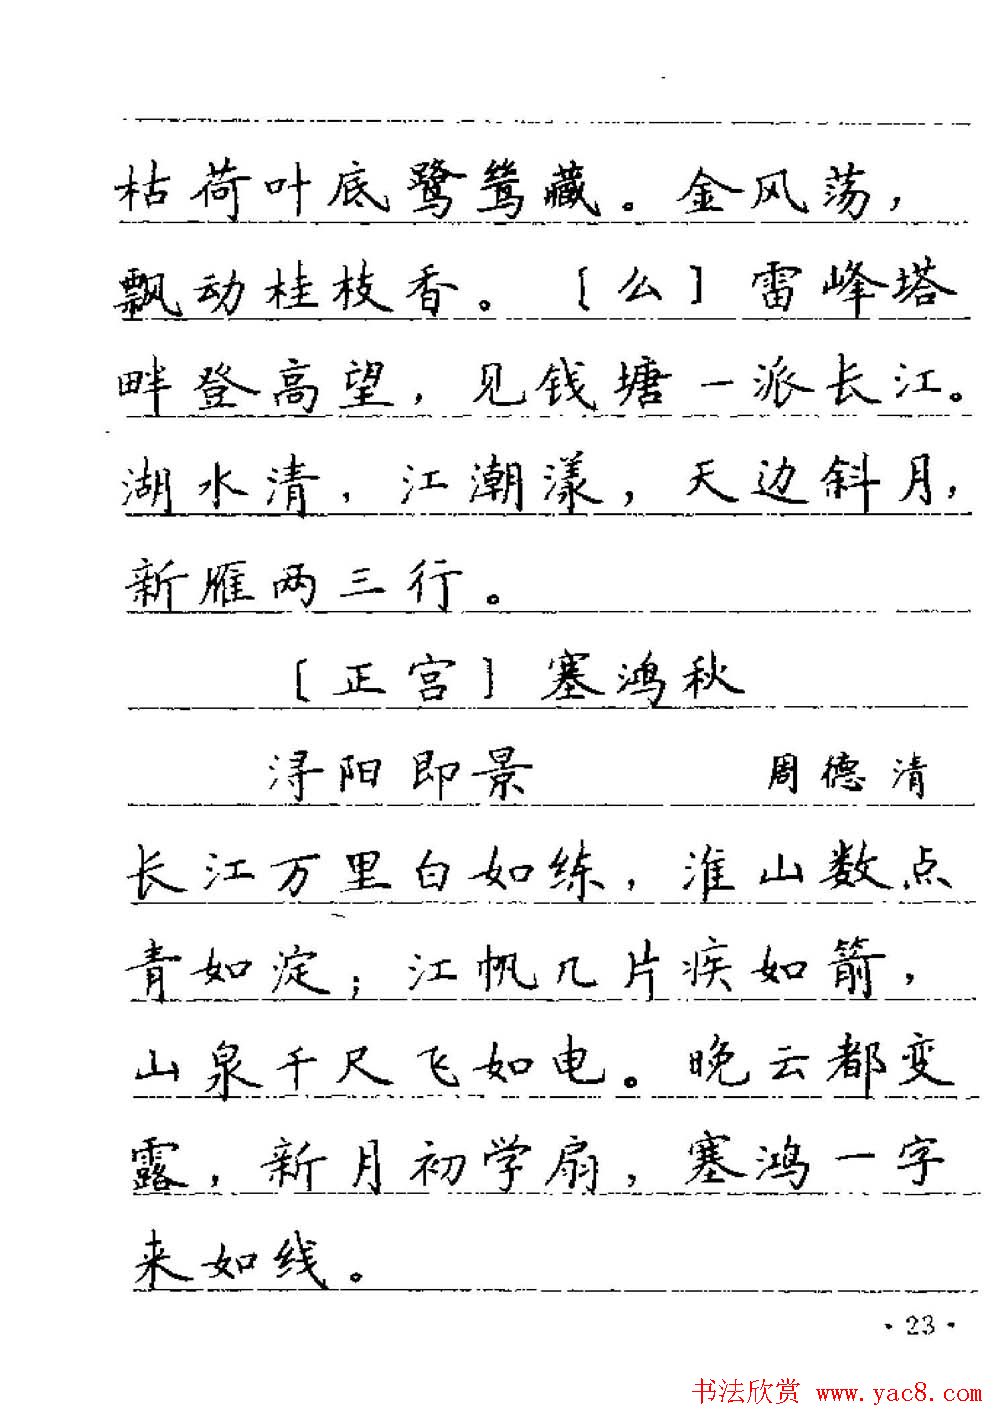 枯荷叶底鹭鸶藏。金风荡，
飘动桂枝香。〔么〕雷峰塔
畔登高望，见钱塘一派长江。
湖水清，江潮漾，天边斜月，
新雁两三行。
〔正宫〕塞鸿秋
浔阳即景 周德清
长江万里白如练，淮山数点
青如淀；江帆几片疾如箭，
山泉千尺飞如电。晚云都变
露，新月初学扇，塞鸿一字
来如线。
·23·
书法欣赏 www.yac8.com